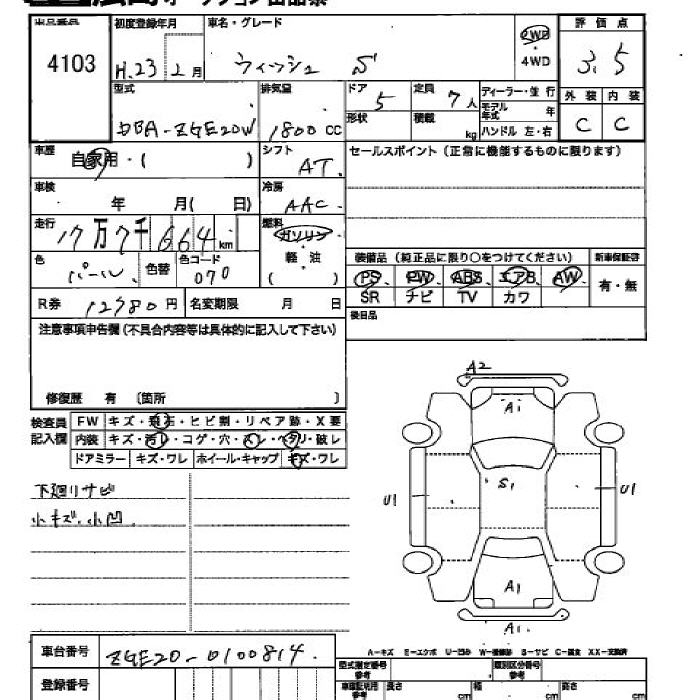 出品番号 4103
初度登録年月 H.23 2月
車名・グレード ウィッシュ S
2WD・4WD
評価点 3.5
型式 DBA-ZGE20W
排気量 1800 CC
ドア 5
形状
定員 7人
積載 kg
ディーラー・並行
モデル年式 年
ハンドル 左・右
外装 内装
C C
車歴 自家用・( )
シフト AT.
セールスポイント(正常に機能するものに限ります)
車検 年 月( 日)
冷房 AAC.
走行 17万7千664km
燃料 ガソリン 軽油 ( )
色 パール 色替 色コード 070
装備品(純正品に限り○をつけてください) 新車保証書
PS、PW、ABS、エアB、AW、
SR ナビ TV カワ
有・無
R券 12980円 名変期限 月 日
後日品
注意事項申告欄(不具合内容等は具体的に記入して下さい)
修復歴 有 〔箇所 〕
検査員記入欄
FW キズ・飛石・ヒビ割・リペア跡・X要
内装 キズ・汚レ・コゲ・穴・スレ・ヘタリ・破レ
ドアミラー キズ・ワレ ホイール・キャップ キズ・ワレ
下廻リサビ
小キズ.小凹
A2
A1
S1
U1
U1
A1
A1.
A-キズ E-エクボ U-凹み W-補修跡 S-サビ C-腐食 XX-交換済
車台番号 ZGE20-0100814.
型式指定番号参考 類別区分番号参考
登録番号
車庫証明用参考 長さ cm 幅 cm 高さ cm